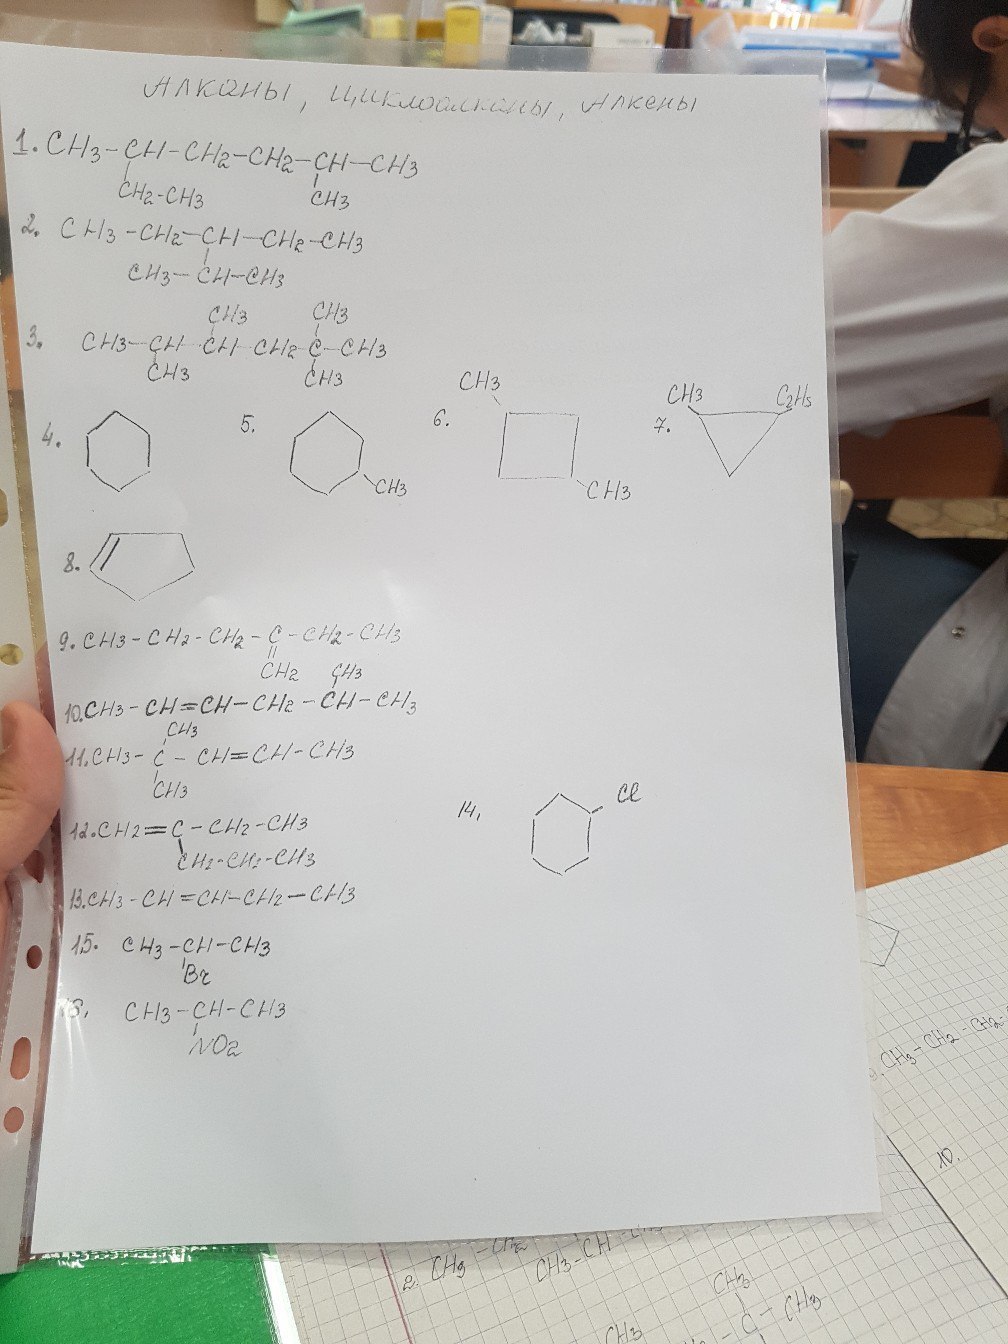 Алканы, Циклоалканы, Алкены
1. CH3-CH-CH2-CH2-CH-CH3
CH2-CH3 CH3
2. CH3-CH2-CH-CH2-CH3
CH3-CH-CH3
CH3 CH3
3. CH3-CH CH CH2 C-CH3
CH3 CH3
4. 5. 6. CH3 7. CH3 C2H5
CH3 CH3
8.
9. CH3-CH2-CH2-C-CH2-CH3
CH2 CH3
10. CH3-CH=CH-CH2-CH-CH3
CH3
11. CH3-C-CH=CH-CH3
CH3
14. Cl
12. CH2=C-CH2-CH3
CH2-CH2-CH3
13. CH3-CH=CH-CH2-CH3
15. CH3-CH-CH3
Br
CH3-CH-CH3
NO2
CH3-CH2-CH2-
10.
2. CH3-CH2
CH3-CH
CH3
C-CH3
CH3